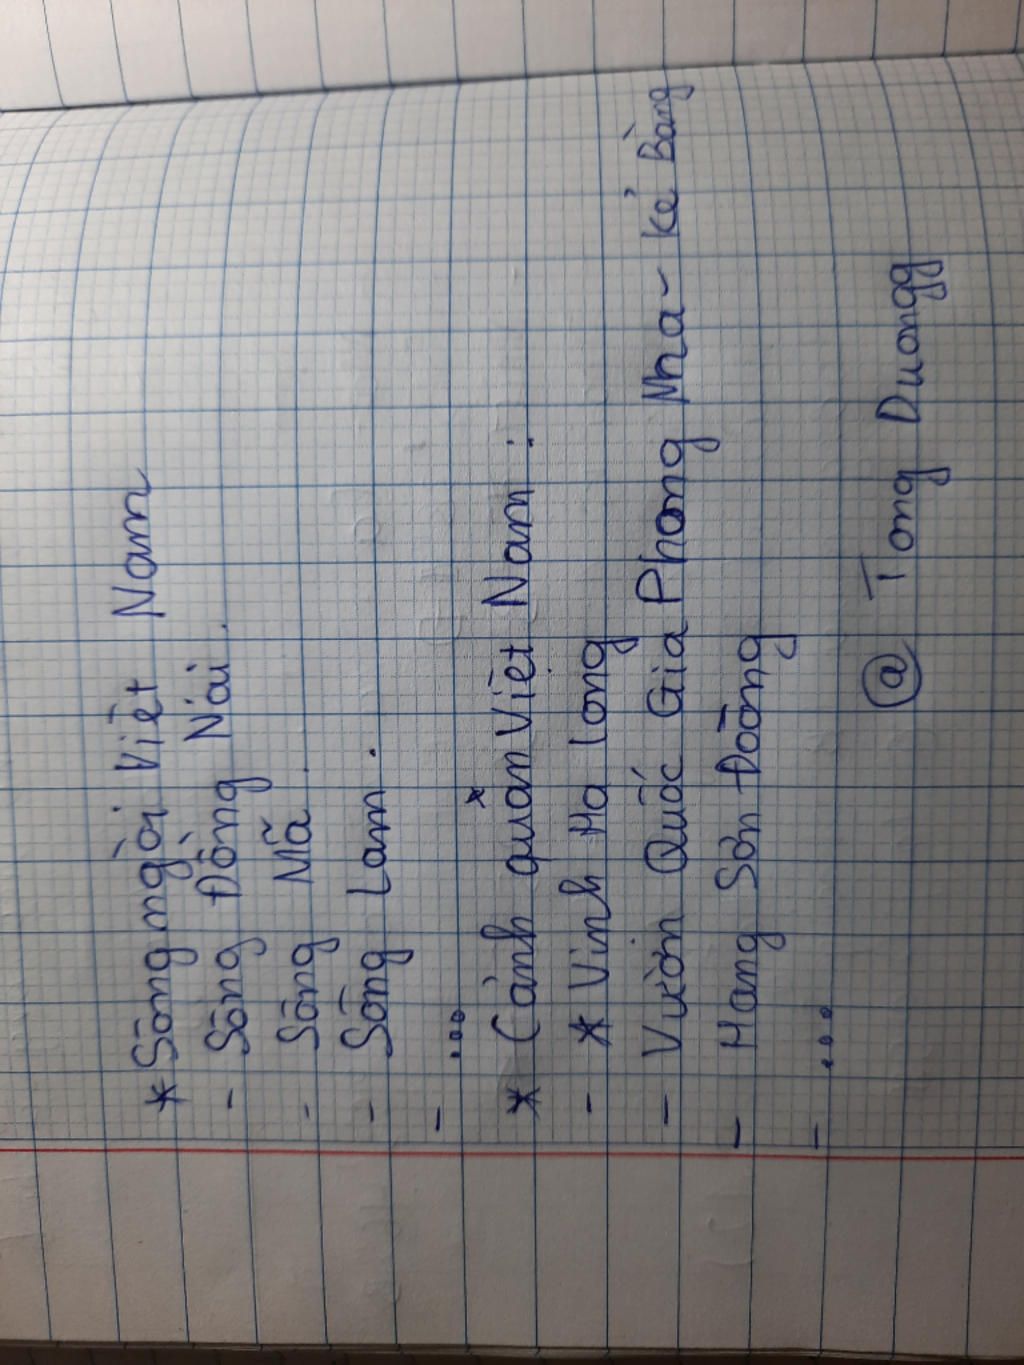 * Sông ngòi Việt Nam
- Sông Đồng Nai.
- Sông Mã.
- Sông Lam.
- ...
* Cảnh quan Việt Nam:
- * Vịnh Hạ Long
- Vườn Quốc Gia Phong Nha - Kẻ Bàng
- Hang Sơn Đoòng
- ...
@ Tong Duongg